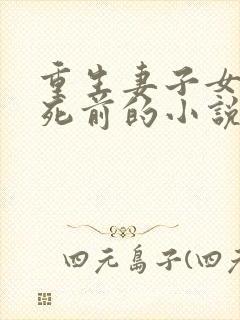 重生妻子女
死前的小説
四元島子(四元